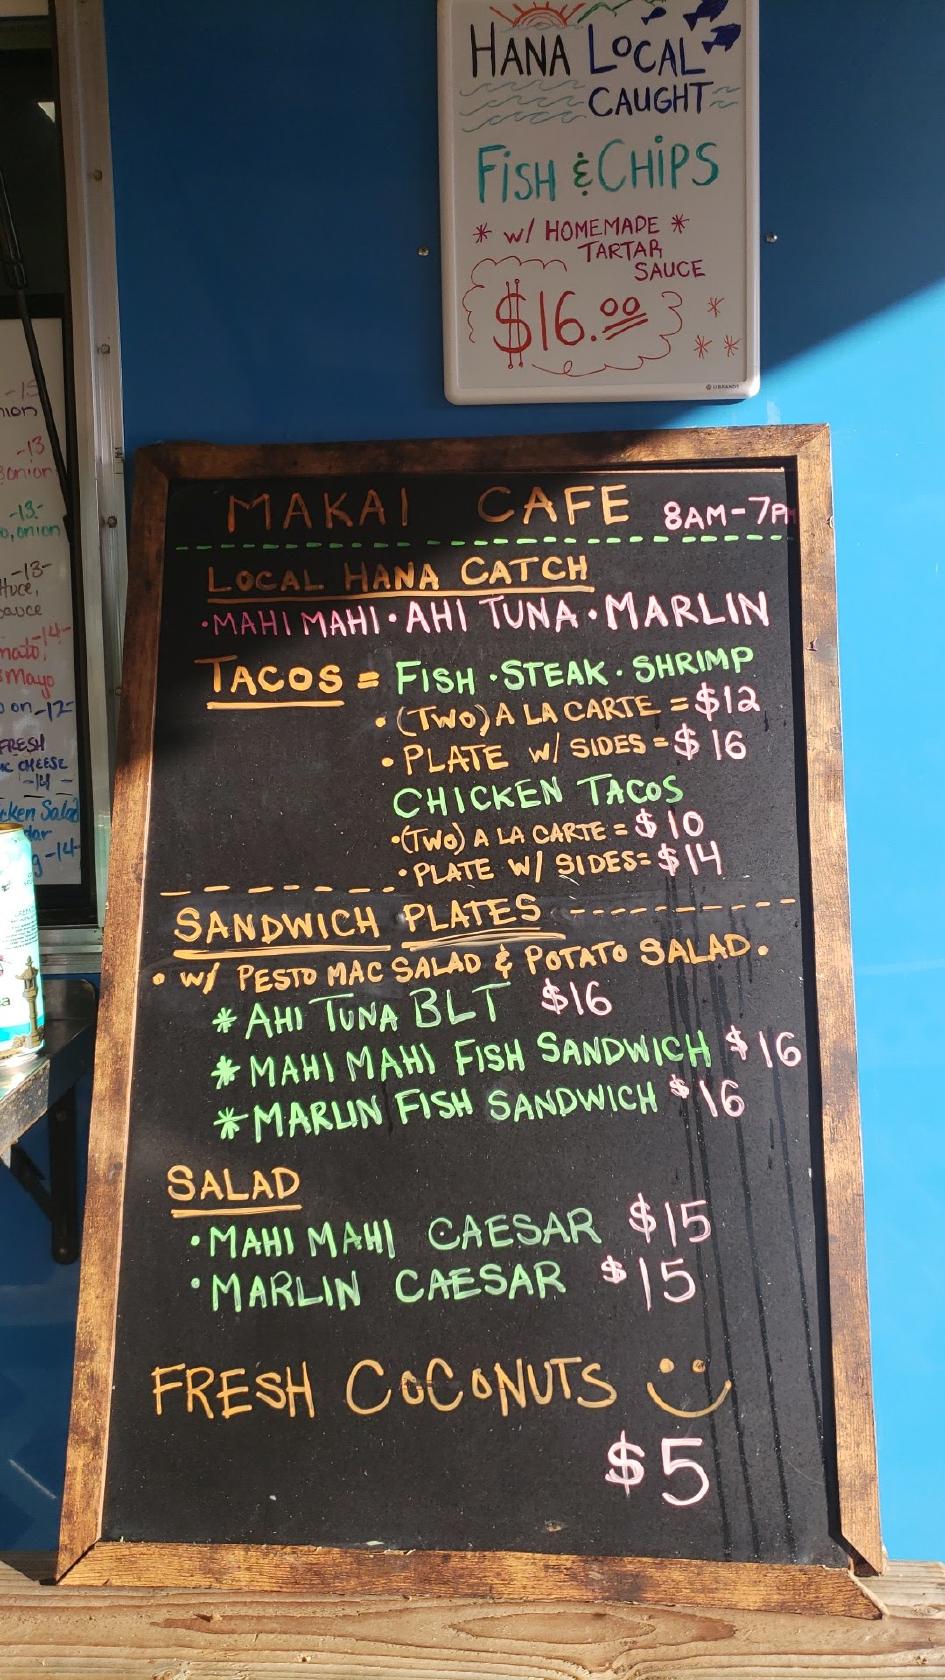 HANA LOCAL
CAUGHT
FISH & CHIPS
* w/ HOMEMADE *
TARTAR
SAUCE
$16.00
* * *
U BRANDS
MAKAI CAFE 8AM-7PM
LOCAL HANA CATCH
• MAHI MAHI • AHI TUNA • MARLIN
TACOS = FISH • STEAK • SHRIMP
• (TWO) A LA CARTE = $12
• PLATE w/ SIDES = $16
CHICKEN TACOS
• (TWO) A LA CARTE = $10
• PLATE W/ SIDES = $14
SANDWICH PLATES
• w/ PESTO MAC SALAD & POTATO SALAD.
* AHI TUNA BLT $16
* MAHI MAHI FISH SANDWICH $16
* MARLIN FISH SANDWICH $16
SALAD
• MAHI MAHI CAESAR $15
• MARLIN CAESAR $15
FRESH COCONUTS
$5
-13
onion
-13-
onion
-13-
-14-
Mayo
on -12-
FRESH
CHEESE
-14-
Salad
-14-